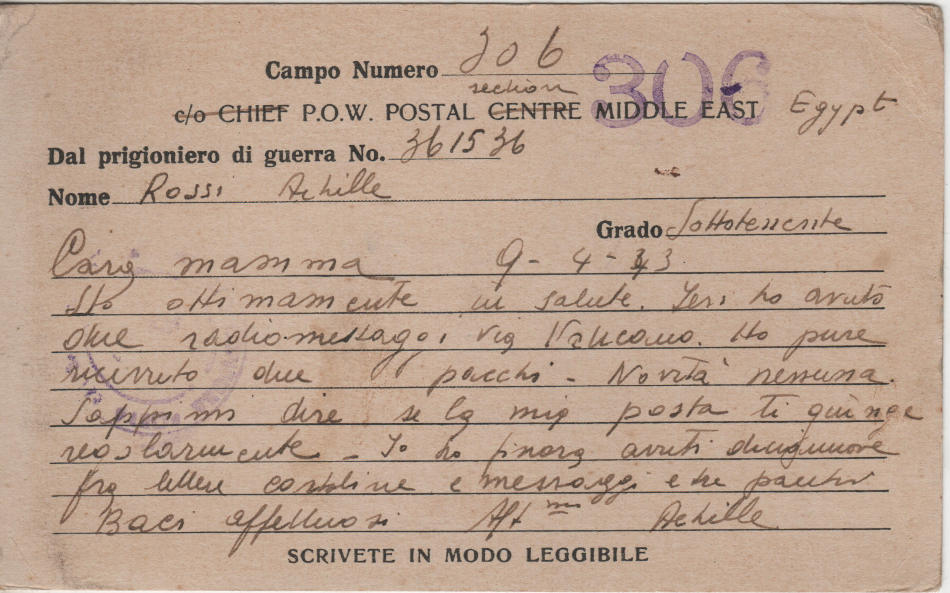 Campo Numero 306
306
section
c/o CHIEF P.O.W. POSTAL CENTRE MIDDLE EAST Egypt
Dal prigioniero di guerra No. 361536
Nome Rossi Achille
Grado Sottotenente
Cara mamma 9-4-43
Sto ottimamente in salute. Ieri ho avuto
due radiomessaggi via Vaticano. Ho pure
ricevuto due pacchi - Novità nessuna.
Sappimi dire se la mia posta ti giunge
regolarmente - Io ho finora avuti
fra lettere cartoline e messaggi e tre pacchi
Baci affettuosi Aff mo Achille
SCRIVETE IN MODO LEGGIBILE